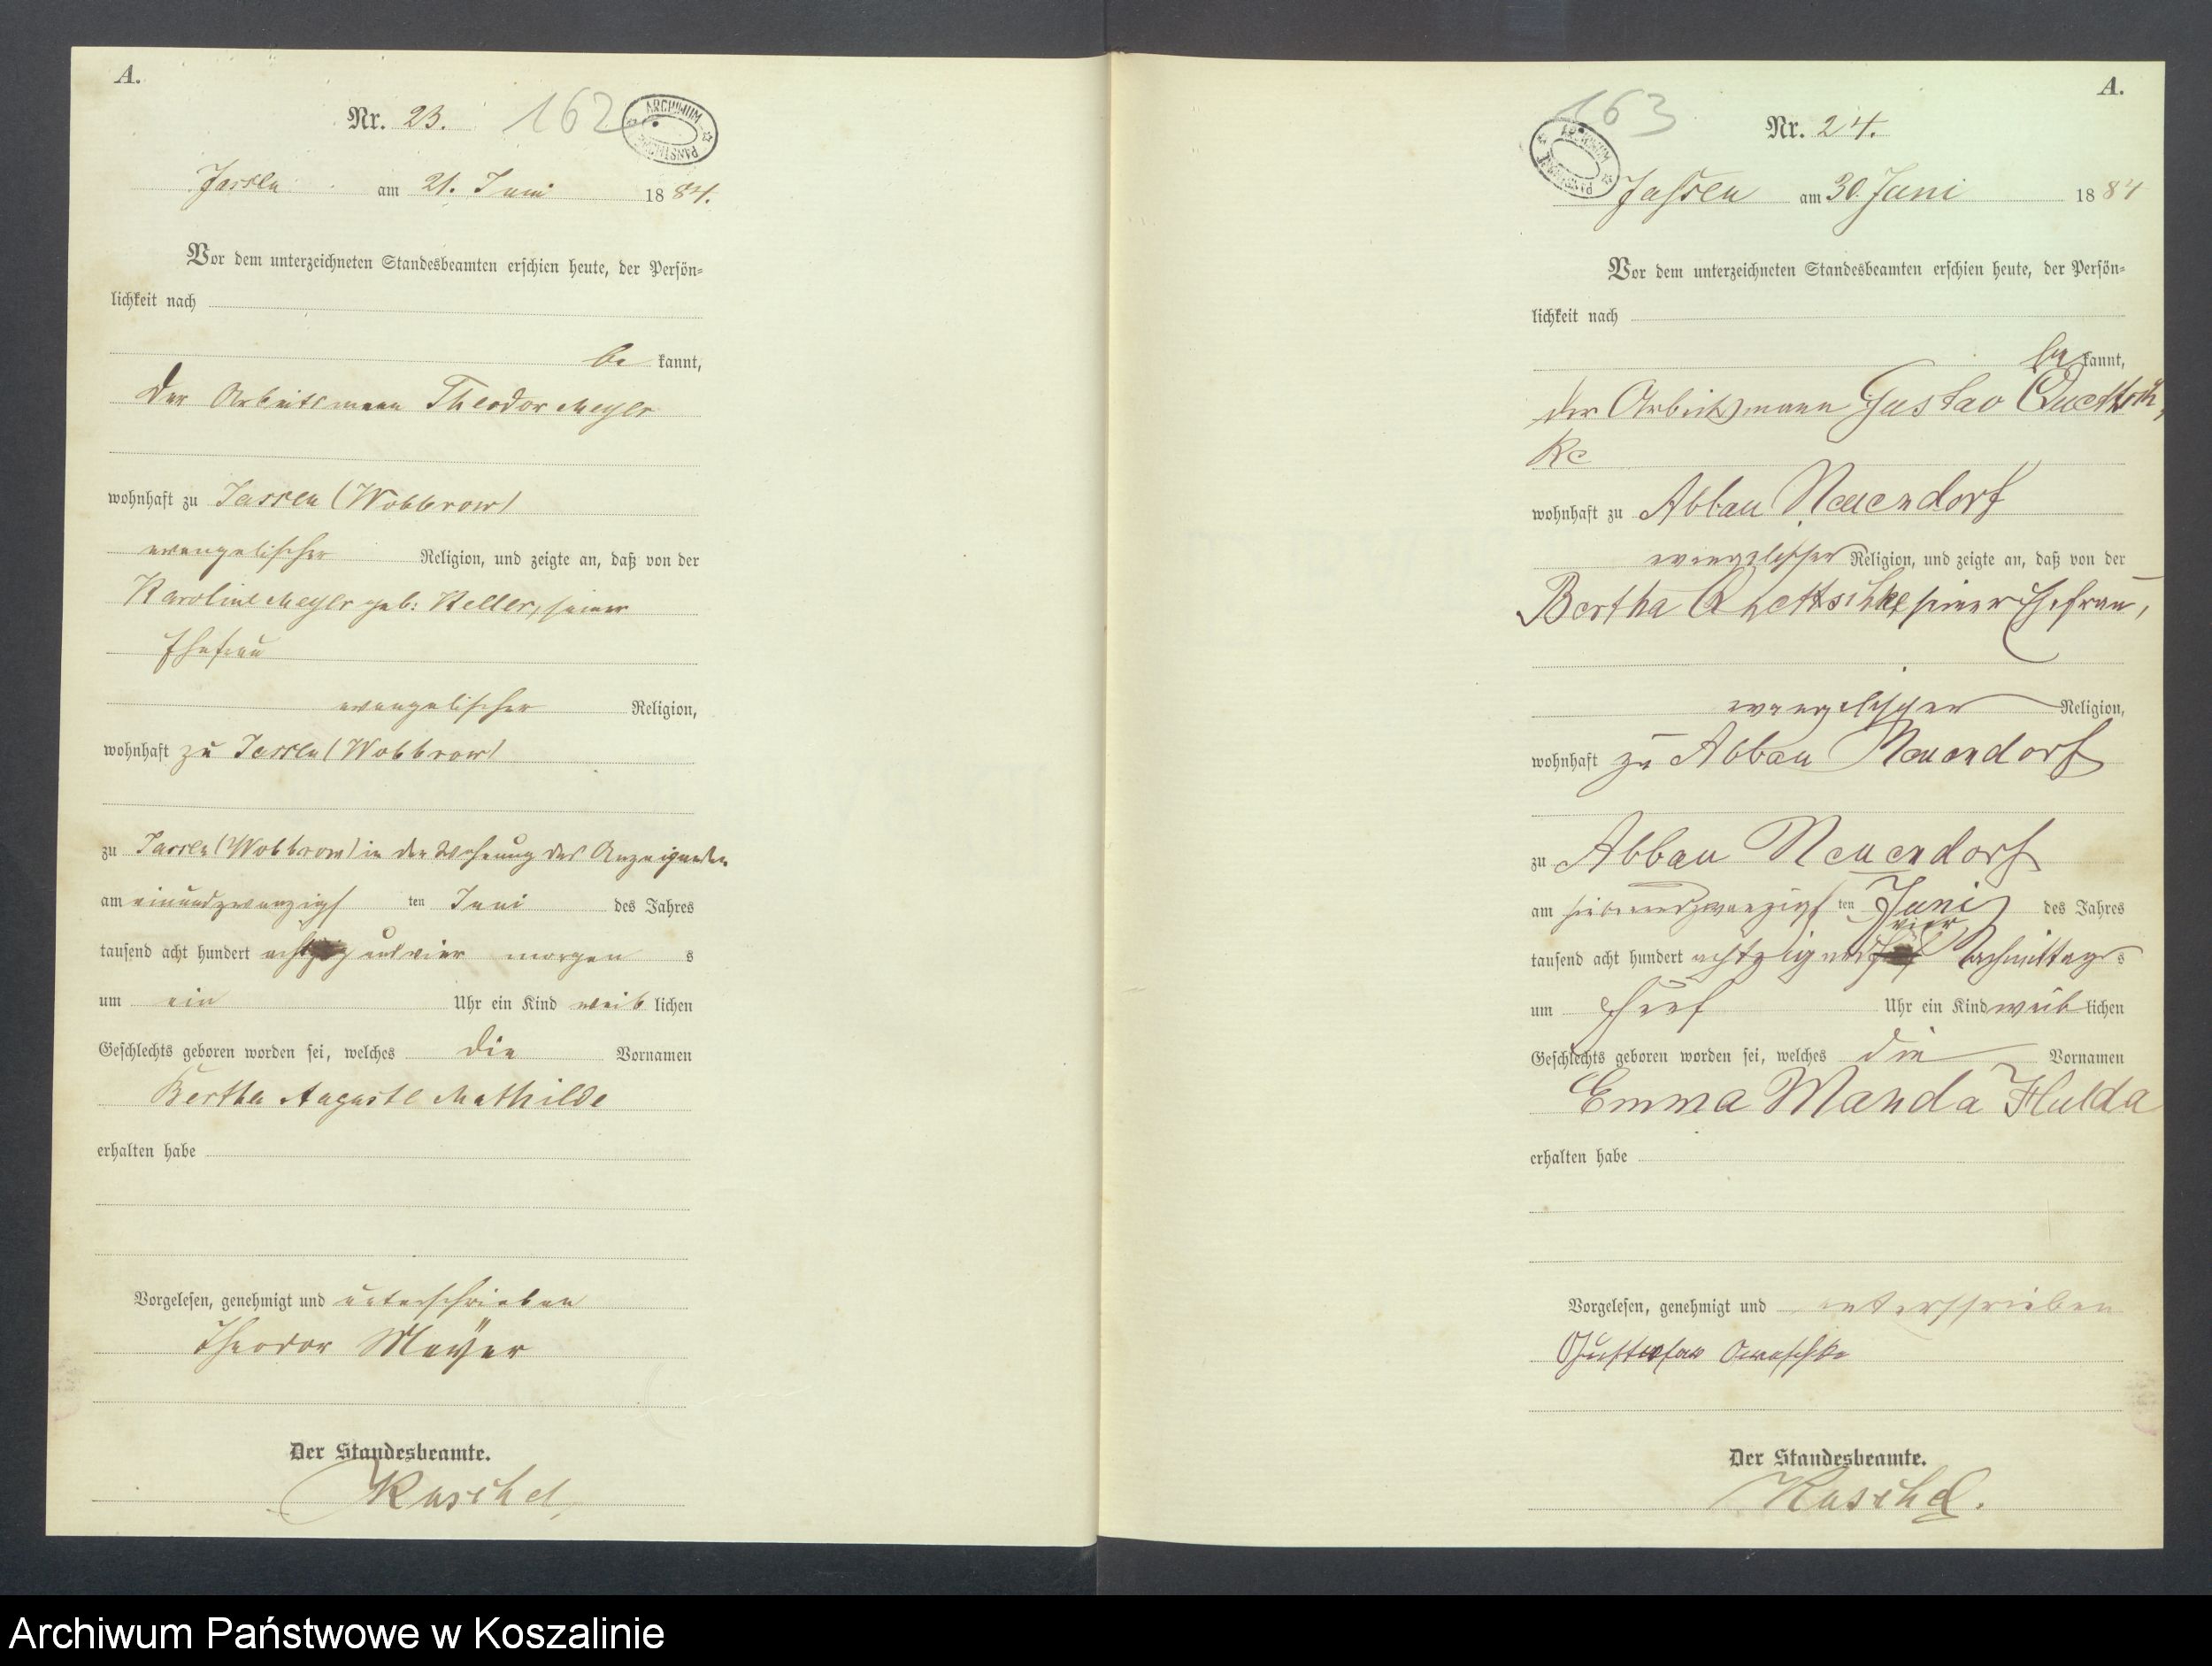 A.
Nr. 23.
162
ARCHIWUM
PAŃSTWOWE
Jassen am 21. Juni 1884.
Vor dem unterzeichneten Standesbeamten erschien heute, der Persön-
lichkeit nach
be kannt,
der Arbeitsmann Theodor Meyer
wohnhaft zu Jassen (Wobbrow)
evangelischer Religion, und zeigte an, daß von der
Karoline Meyer geb: Keller, seiner
Ehefrau
evangelischer Religion,
wohnhaft zu Jassen (Wobbrow)
zu Jassen (Wobbrow) in der Wohnung des Anzeigenden
am einundzwanzigs ten Juni des Jahres
tausend acht hundert achtzig und vier morgen s
um ein Uhr ein Kind weib lichen
Geschlechts geboren worden sei, welches die Vornamen
Bertha Auguste Mathilde
erhalten habe
Vorgelesen, genehmigt und unterschrieben
Theodor Meyer
Der Standesbeamte.
Kuschel,
A.
Nr. 24.
163
ARCHIWUM
PAŃSTWOWE
Jassen am 30. Juni 1884
Vor dem unterzeichneten Standesbeamten erschien heute, der Persön-
lichkeit nach
be kannt,
der Arbeitsmann Gustav
ke
wohnhaft zu Abbau Neuendorf
evangelischer Religion, und zeigte an, daß von der
Bertha seiner Ehefrau,
evangelischer Religion,
wohnhaft zu Abbau Neuendorf
zu Abbau Neuendorf
am siebenundzwanzigs ten Juni des Jahres
vier
tausend acht hundert achtzig und Nachmittag s
um fünf Uhr ein Kind weib lichen
Geschlechts geboren worden sei, welches die Vornamen
Emma Manda Hulda
erhalten habe
Vorgelesen, genehmigt und unterschrieben
Der Standesbeamte.
Kuschel.
Archiwum Państwowe w Koszalinie